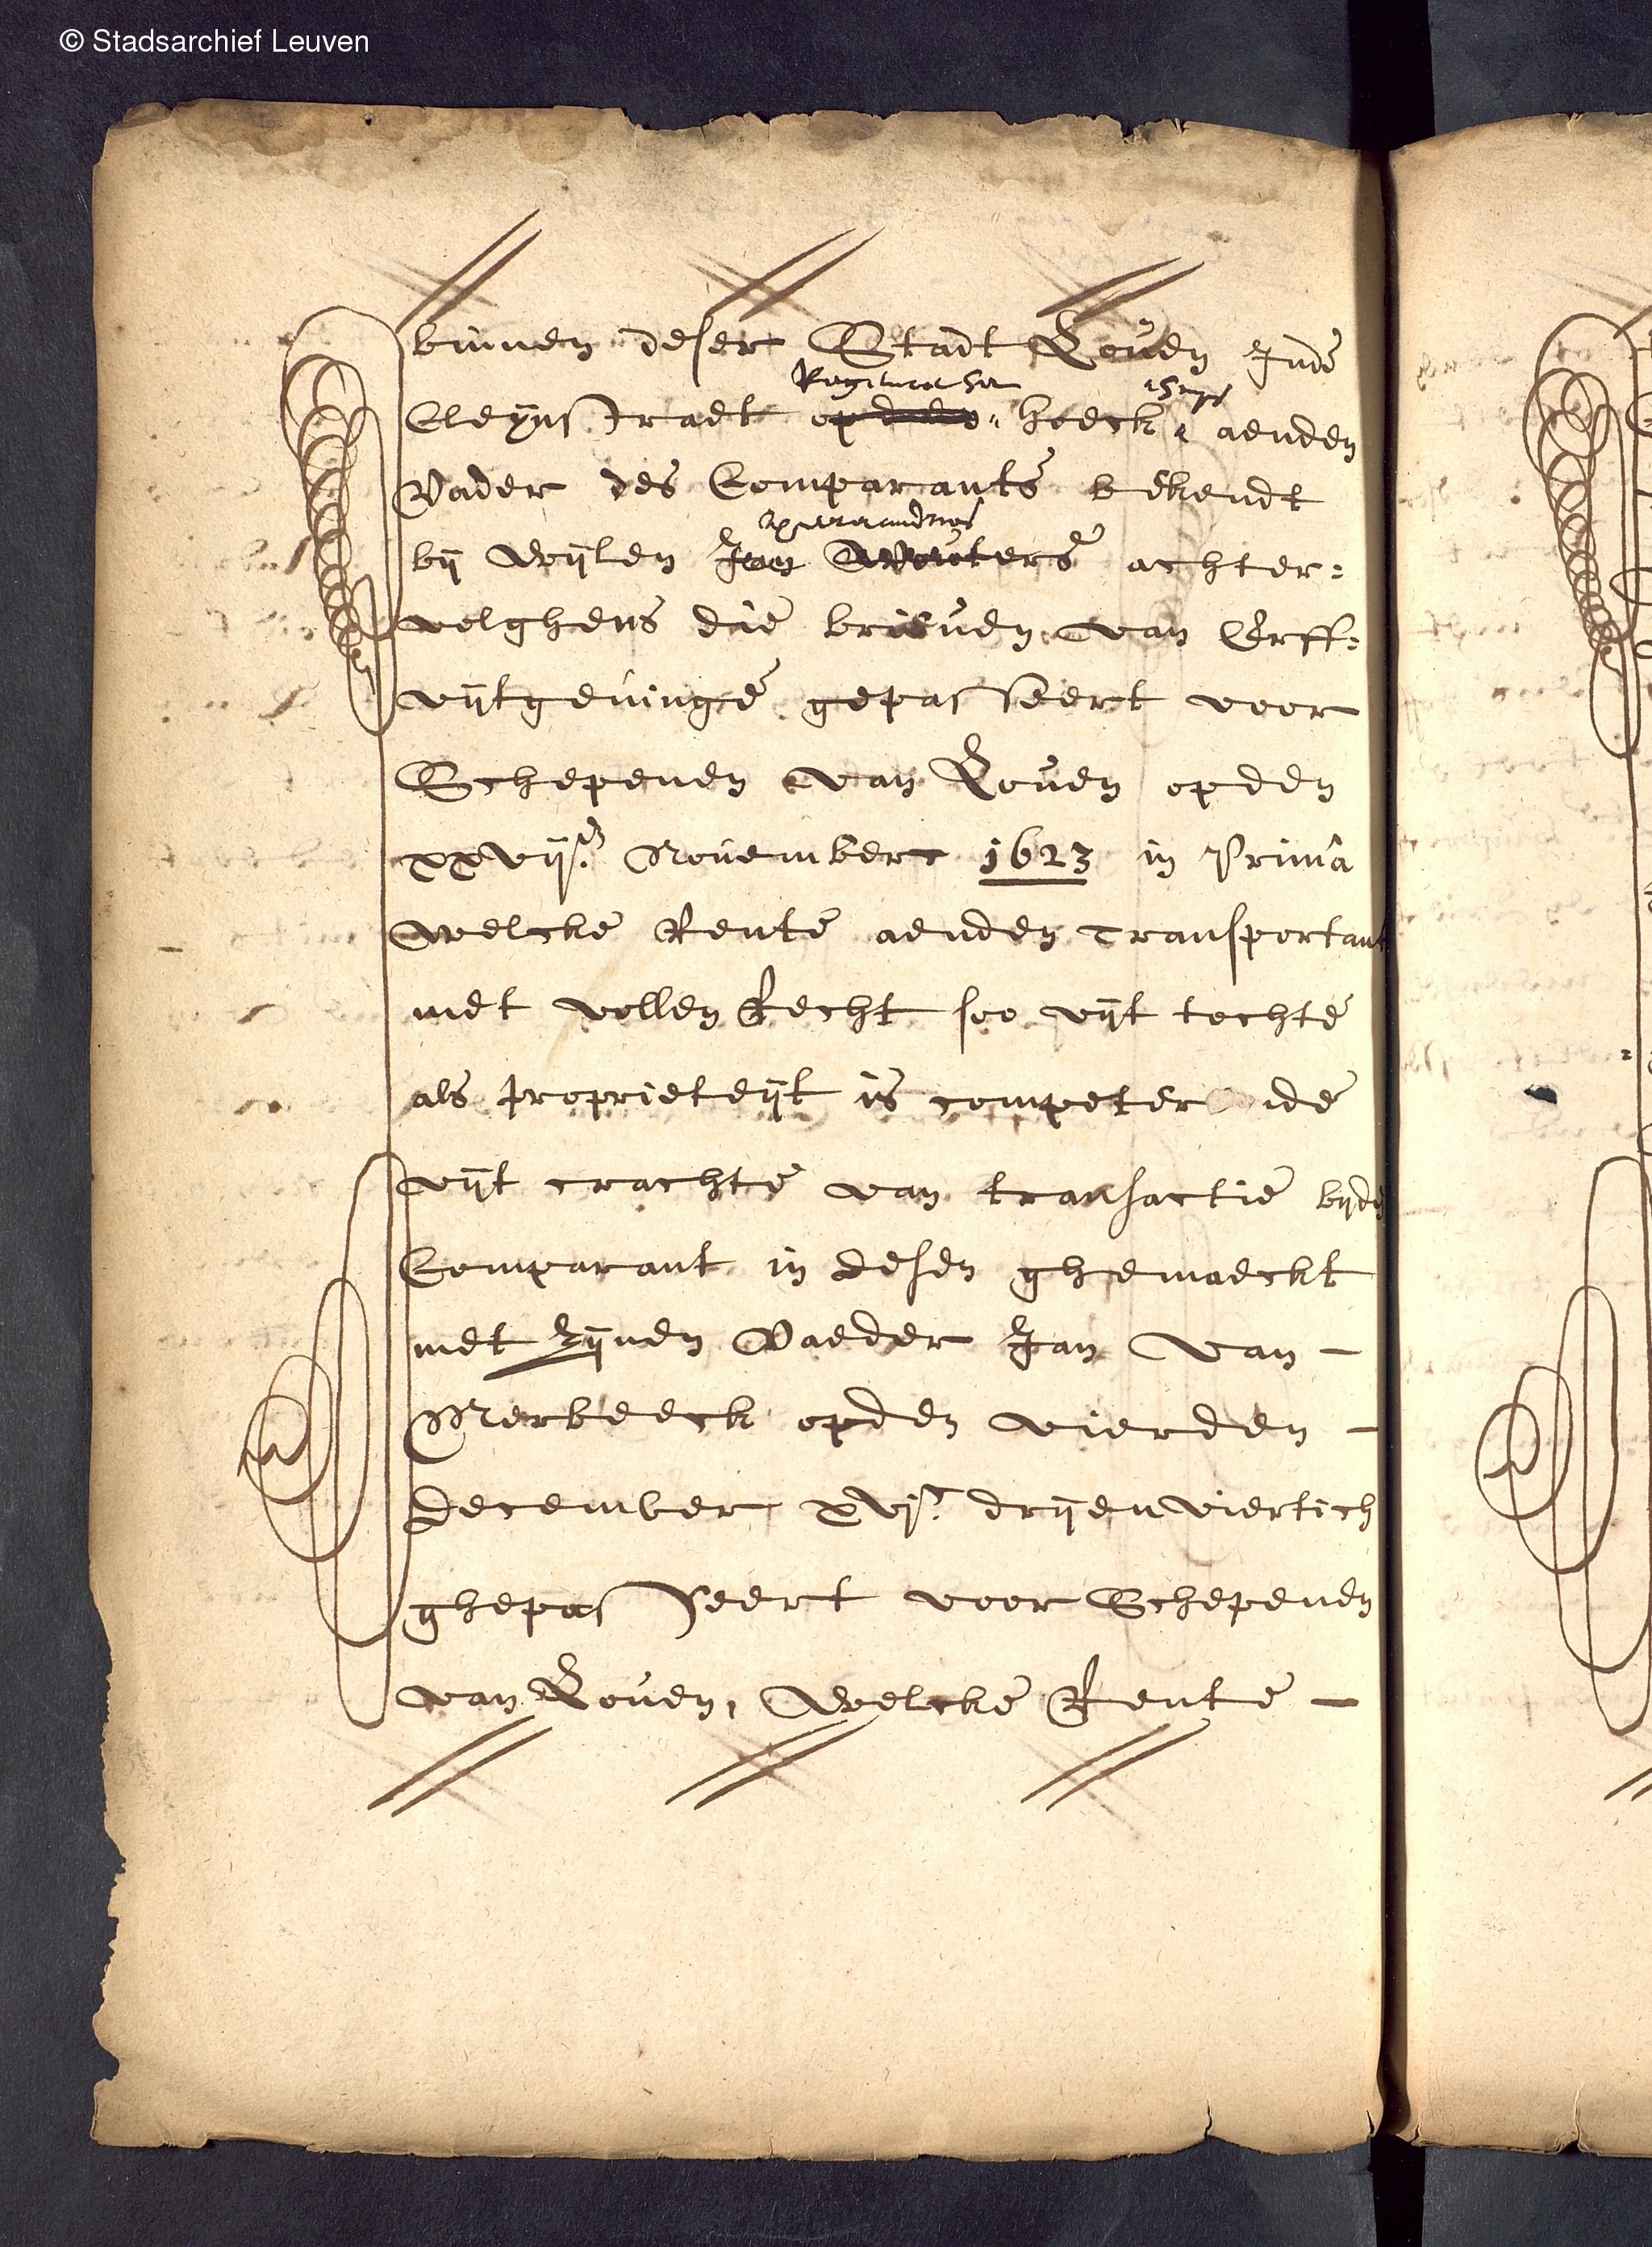 © Stadsarchief Leuven
binnen deser Stadt Loúen Inde
Cleÿnstraet hoeck aenden
Vader des Comparants bekendt
bij Wijlen Jan Wouters achter=
volghens die brieúen van Erff=
vijtgeúinge gepasseert voor
Schepenen van Loúen opden
xxvij Nouember 1623 in Prima
Welcke Rente aenden transportant
met vollen Recht soo vijt tochte
als proprieteijt is competerende
vijt crachte van transactie bijde
Comparant in desen ghemaeckt
met zijnen Vaeder Jan Van –
Merbeeck opden vierden –
December xvjc drijenviertich
ghepasseert voor Schepenen
van Loúen, Welcke Rente –